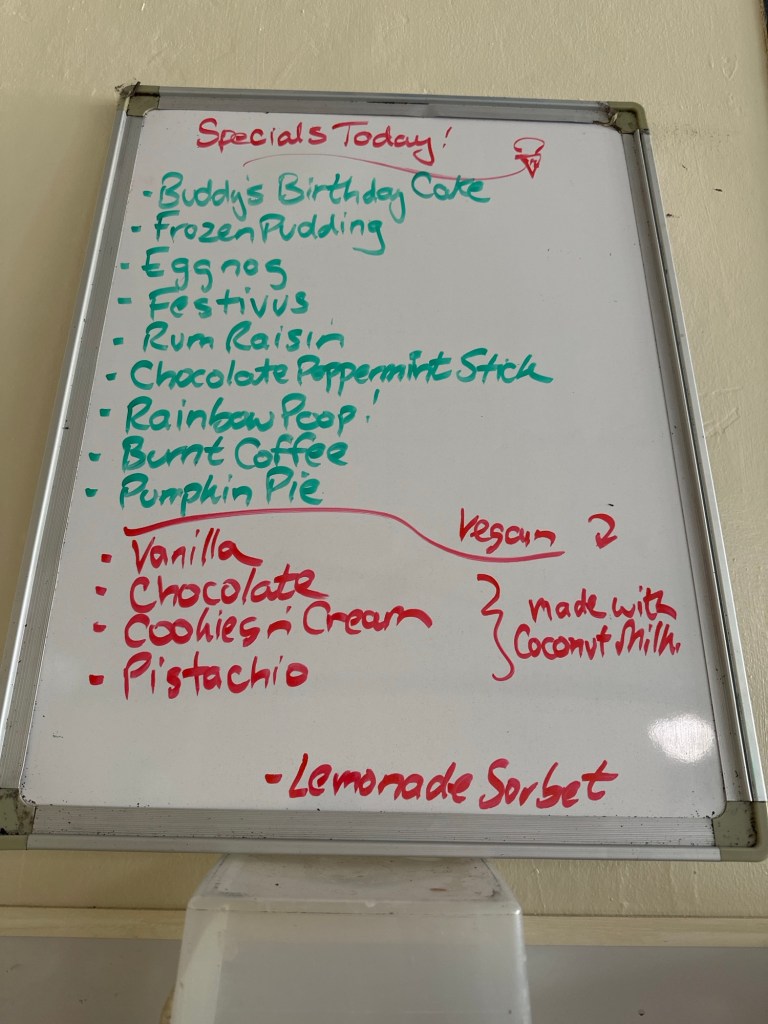 Specials Today!
- Buddy's Birthday Cake
- Frozen Pudding
- Eggnog
- Festivus
- Rum Raisin
- Chocolate Peppermint Stick
- Rainbow Poop!
- Burnt Coffee
- Pumpkin Pie
Vegan
- Vanilla
- Chocolate
- Cookies n Cream
- Pistachio
made with
Coconut Milk.
- Lemonade Sorbet